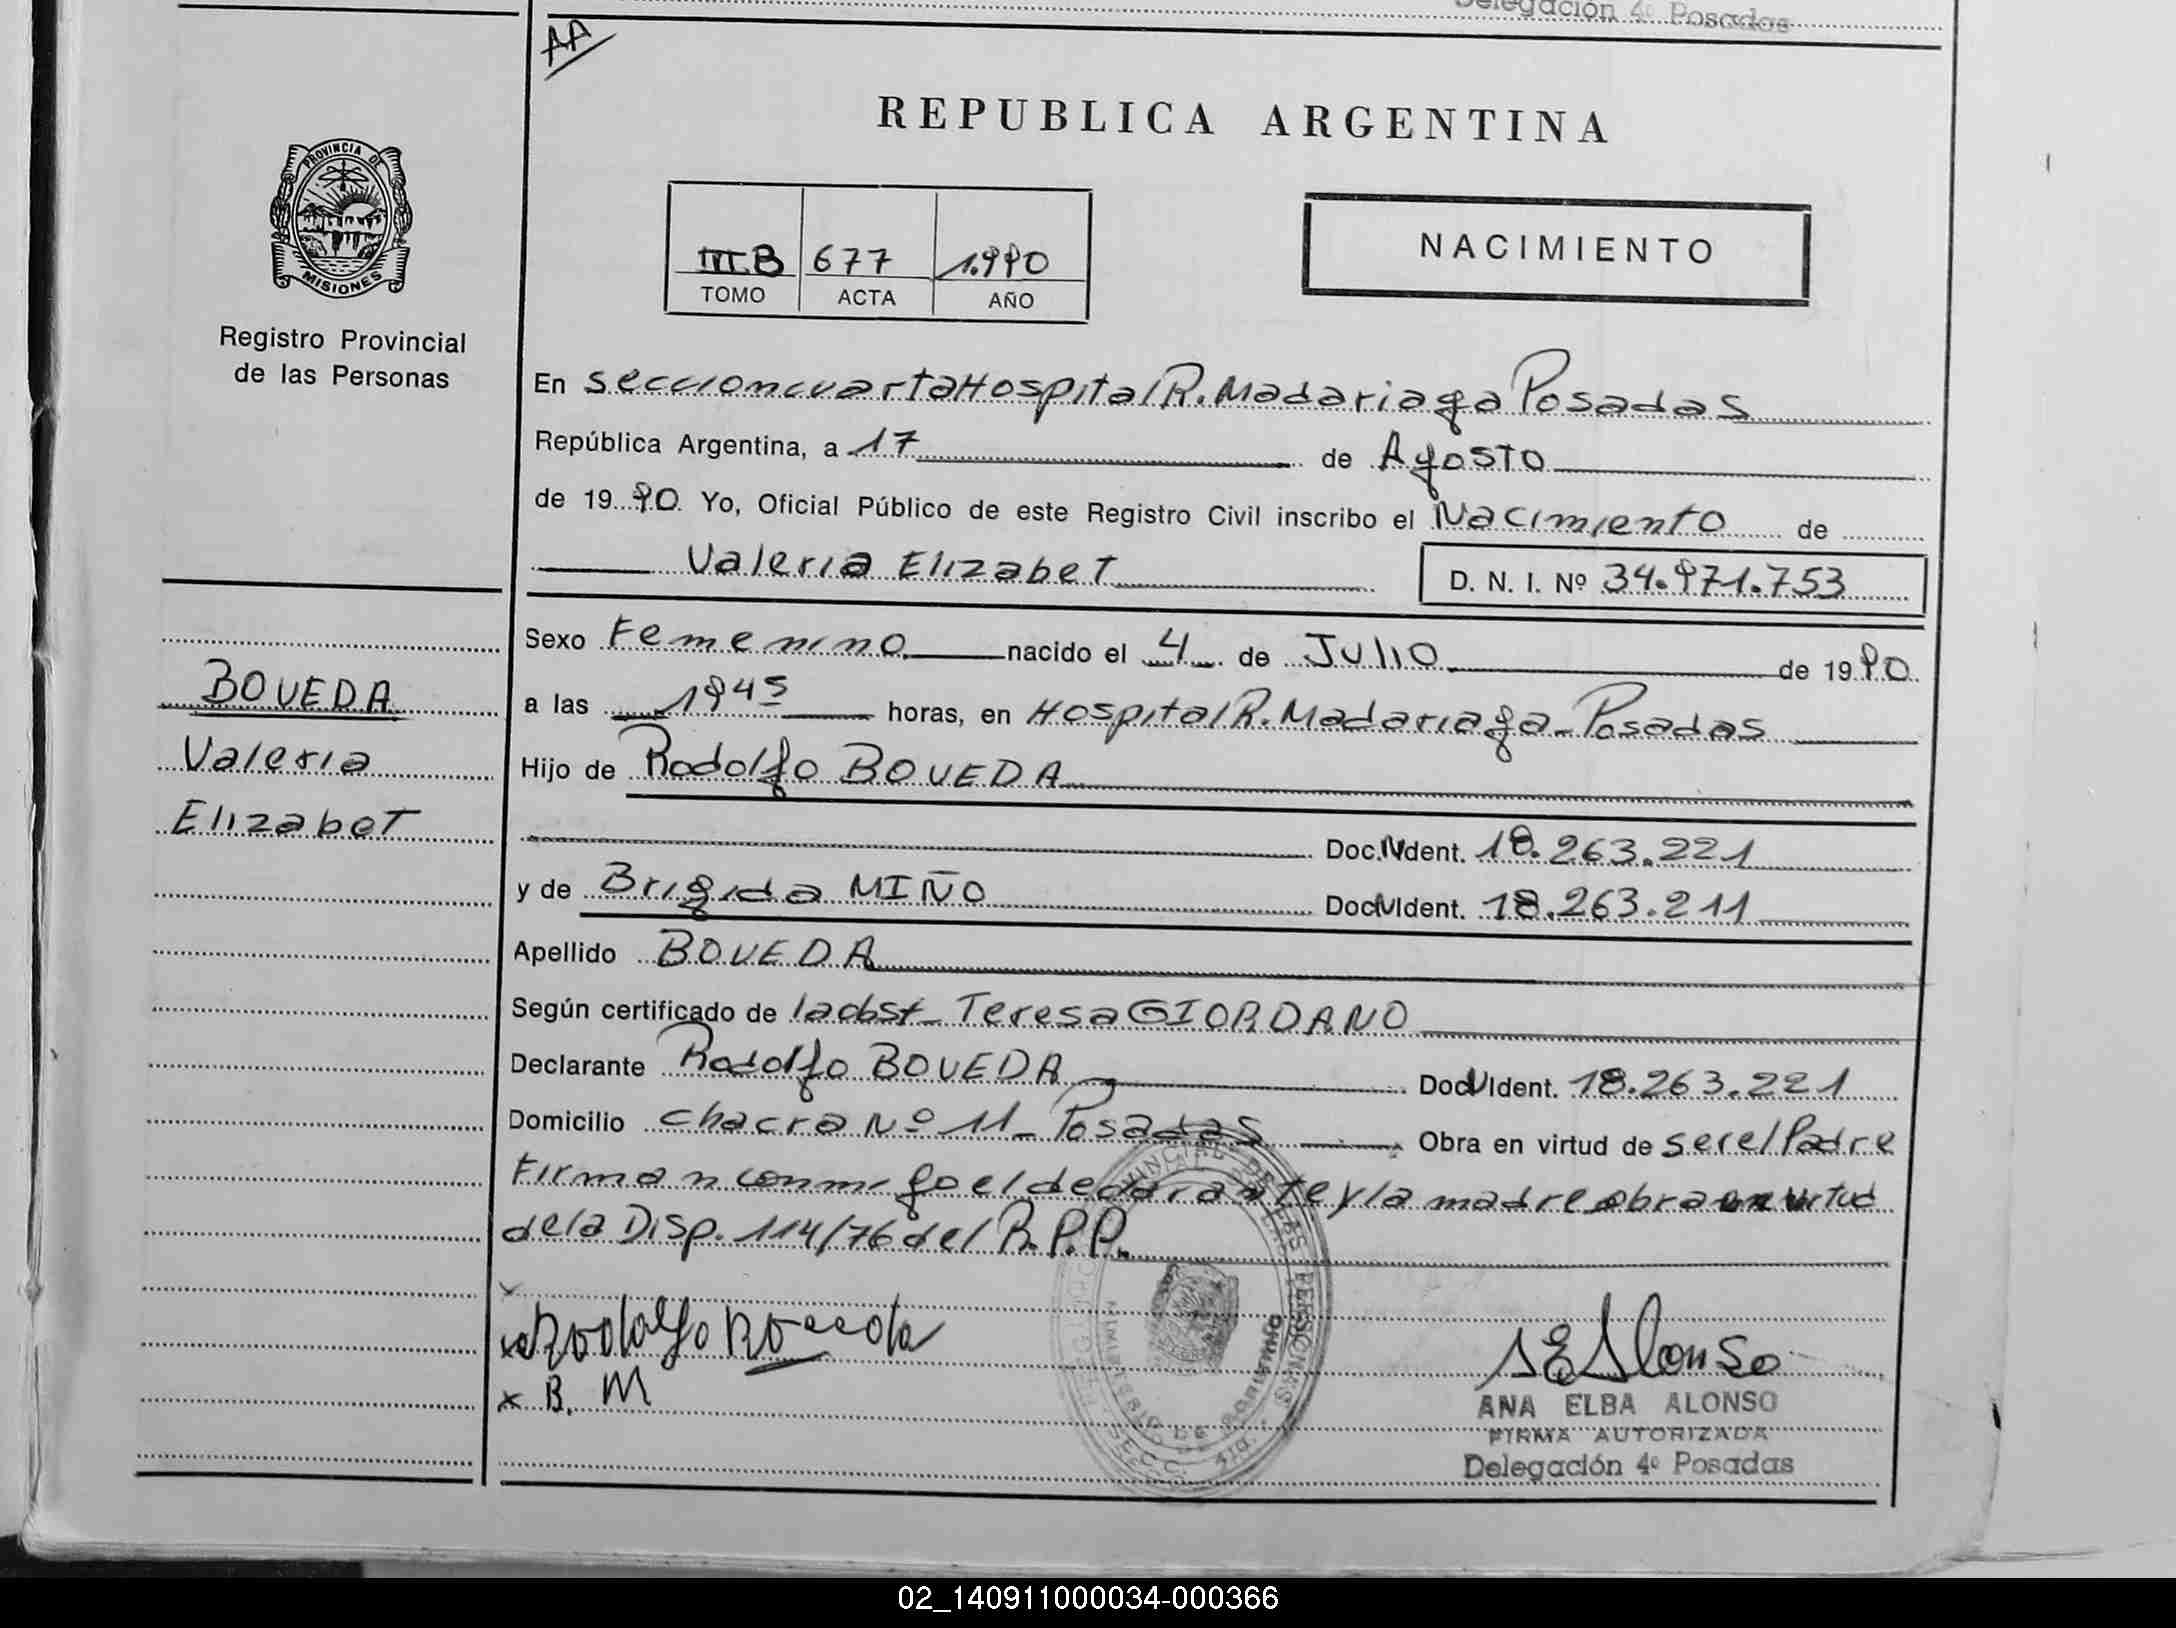 Delegación 4º Posadas
AA
REPUBLICA ARGENTINA
PROVINCIA DE
MISIONES
Registro Provincial
de las Personas
III.B 677 1.990
TOMO ACTA AÑO
NACIMIENTO
En seccion cuarta Hospital R. Madariaga Posadas
República Argentina, a 17 de Agosto
de 19 90 Yo, Oficial Público de este Registro Civil inscribo el Nacimiento de
Valeria Elizabet D. N. I. Nº 34.971.753
BOVEDA
Valeria
Elizabet
Sexo Femenino nacido el 4 de Julio de 19 90
a las 19 45 horas, en Hospital R. Madariaga - Posadas
Hijo de Rodolfo BOVEDA
Doc.N Ident. 18.263.221
y de Brigida MIÑO Doc.N Ident. 18.263.211
Apellido BOVEDA
Según certificado de la obst. Teresa GIORDANO
Declarante Rodolfo BOVEDA Doc.N Ident. 18.263.221
Domicilio chacra Nº 11 - Posadas Obra en virtud de ser el Padre
Firman conmigo el declarante y la madre obra en virtud
de la Disp. 114/76 del R.P.P.
x
x Rodolfo
x B. M
AEAlonso
ANA ELBA ALONSO
FIRMA AUTORIZADA
Delegación 4º Posadas
02_140911000034-000366